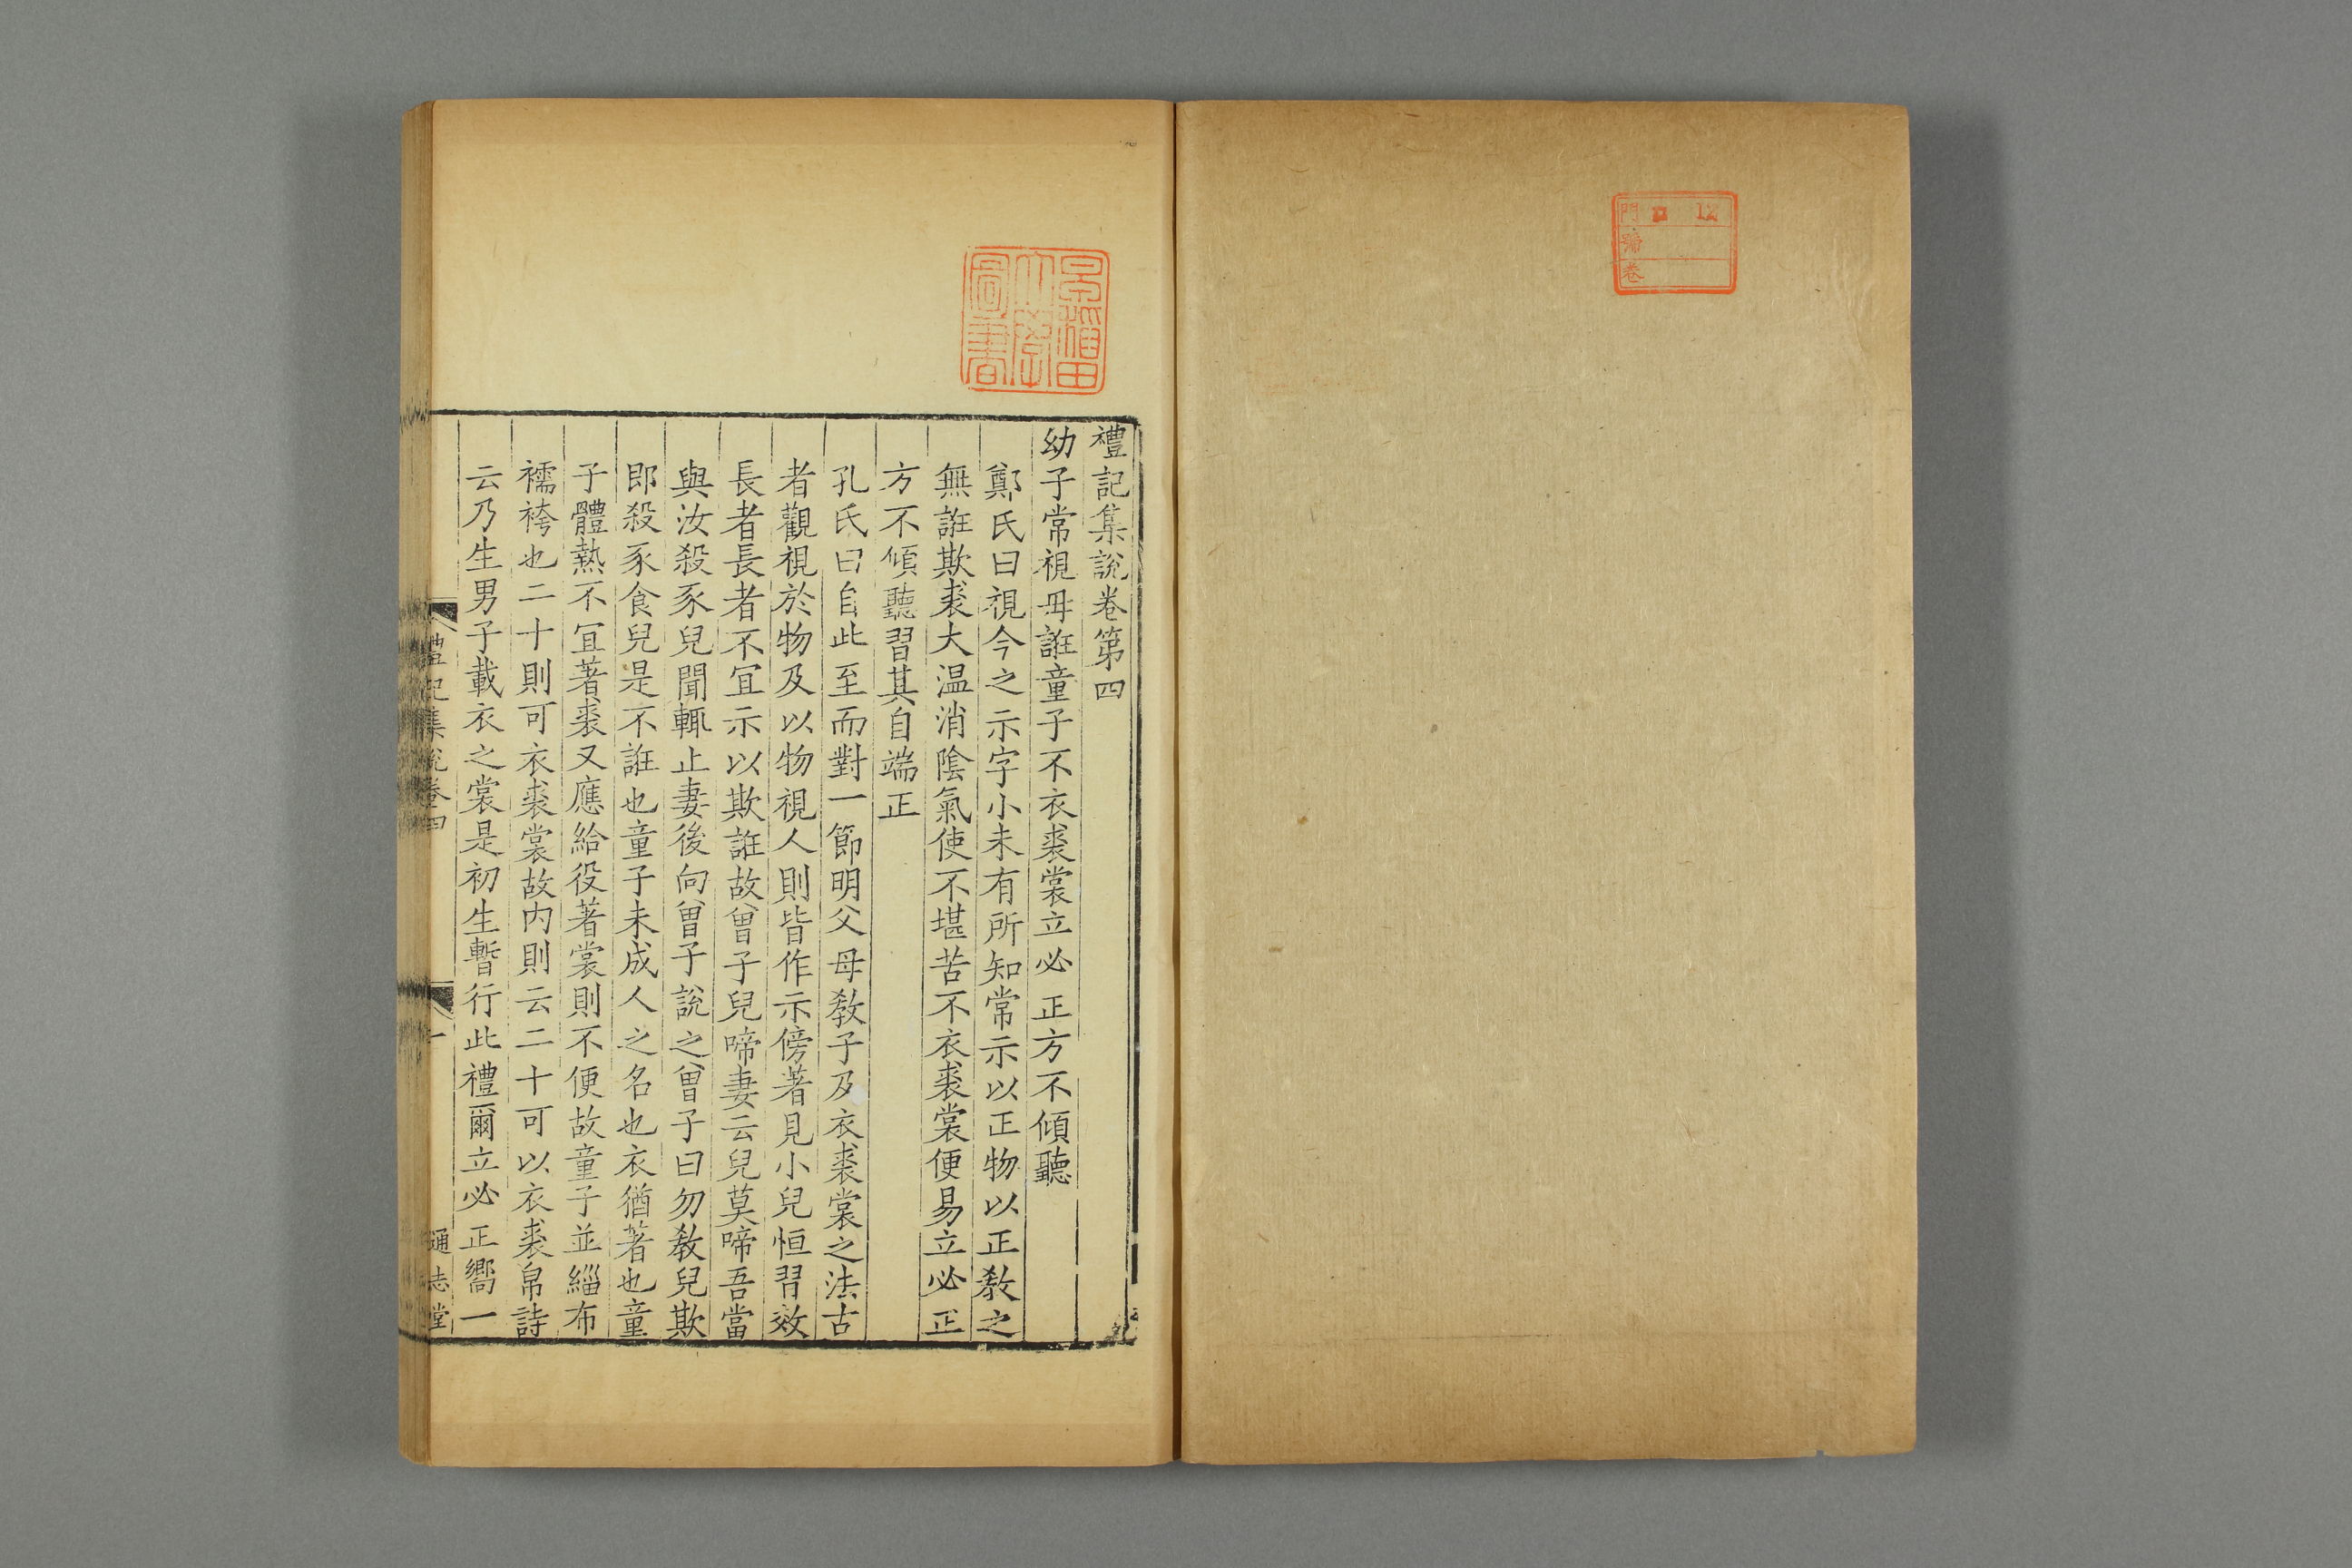 門 12
號
卷
禮記集說卷第四
幼子常視毋誑童子不衣裘裳立必正方不傾聽
鄭氏曰視今之示字小未有所知常示以正物以正教之
無誑欺裘大温消陰氣使不堪苦不衣裘裳便易立必正
方不傾聽習其自端正
孔氏曰自此至而對一節明父母教子及衣裘裳之法古
者觀視於物及以物視人則皆作示傍著見小兒恒習效
長者長者不宜示以欺誑故曾子兒啼妻云兒莫啼吾當
與汝殺豕兒聞輒止妻後向曾子說之曾子曰勿教兒欺
即殺豕食兒是不誑也童子未成人之名也衣猶著也童
子體熱不宜著裘又應給役著裳則不便故童子並緇布
襦袴也二十則可衣裘裳故内則云二十可以衣裘帛詩
云乃生男子載衣之裳是初生暫行此禮爾立必正嚮一
禮記集說卷四 一 通志堂